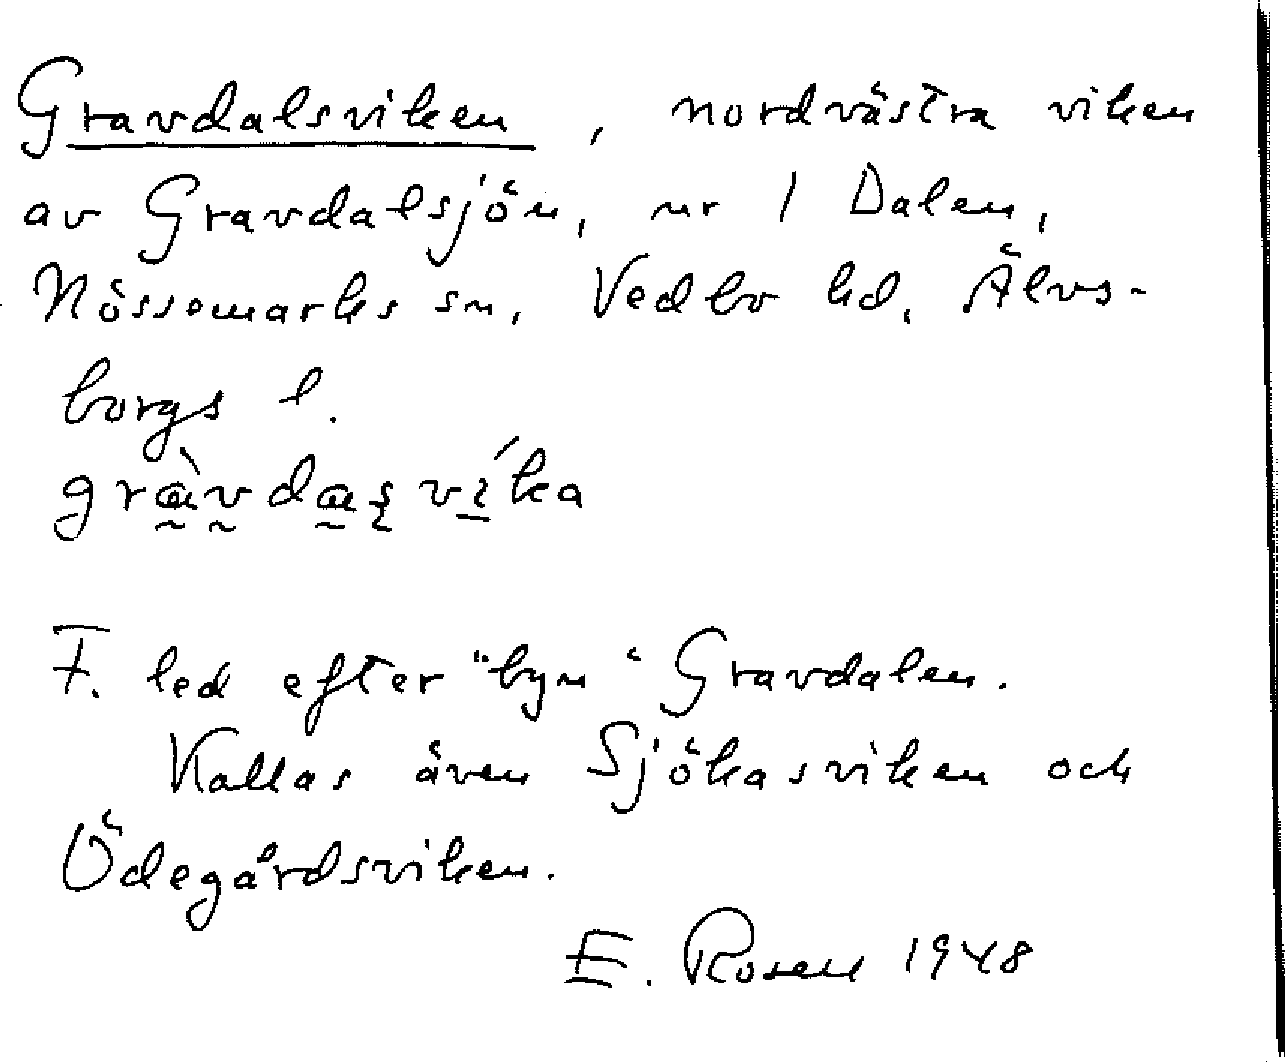 Gravdalsviken, nordvästra viken
av Gravdalsjön, nr 1 Dalen,
Nössemarks sn, Vedbo hd, Älvs-
borgs l.
F. led efter "byn" Gravdalen.
Kallas även Sjökasviken och
Ödegårdsviken.
E. Rosell 1948